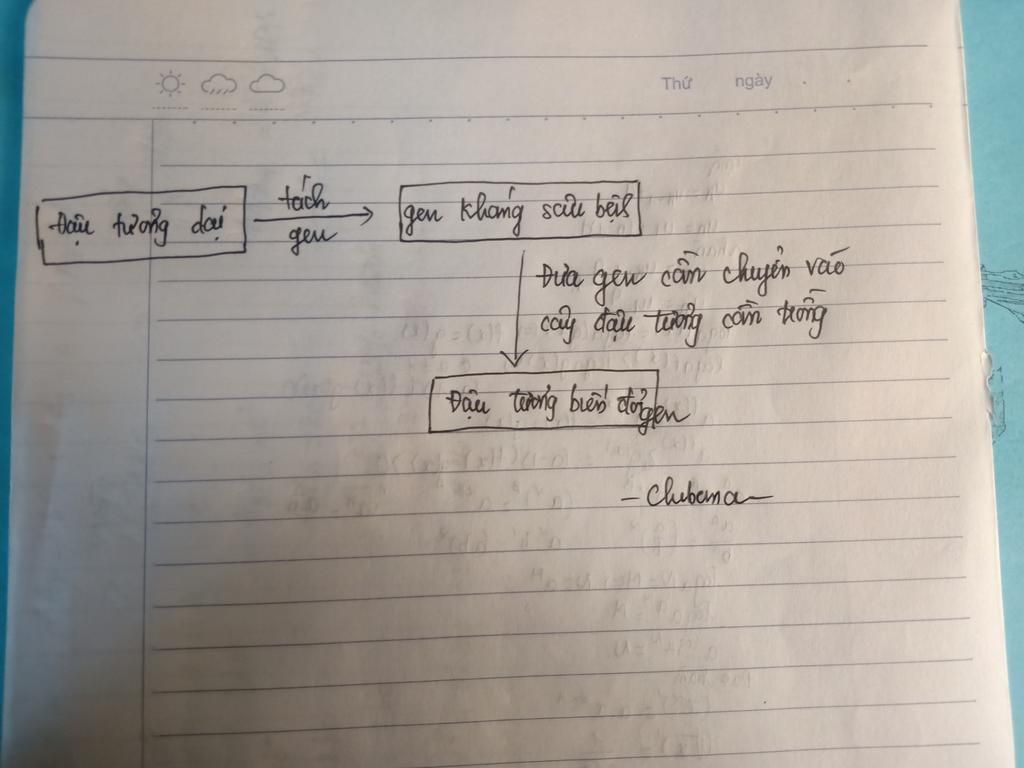 Thứ ngày
Đậu tương dại
tách
gen
gen kháng sâu bệh
Đưa gen cần chuyển vào
cây đậu tương cần trồng
Đậu tương biến đổi gen
- Chubema -